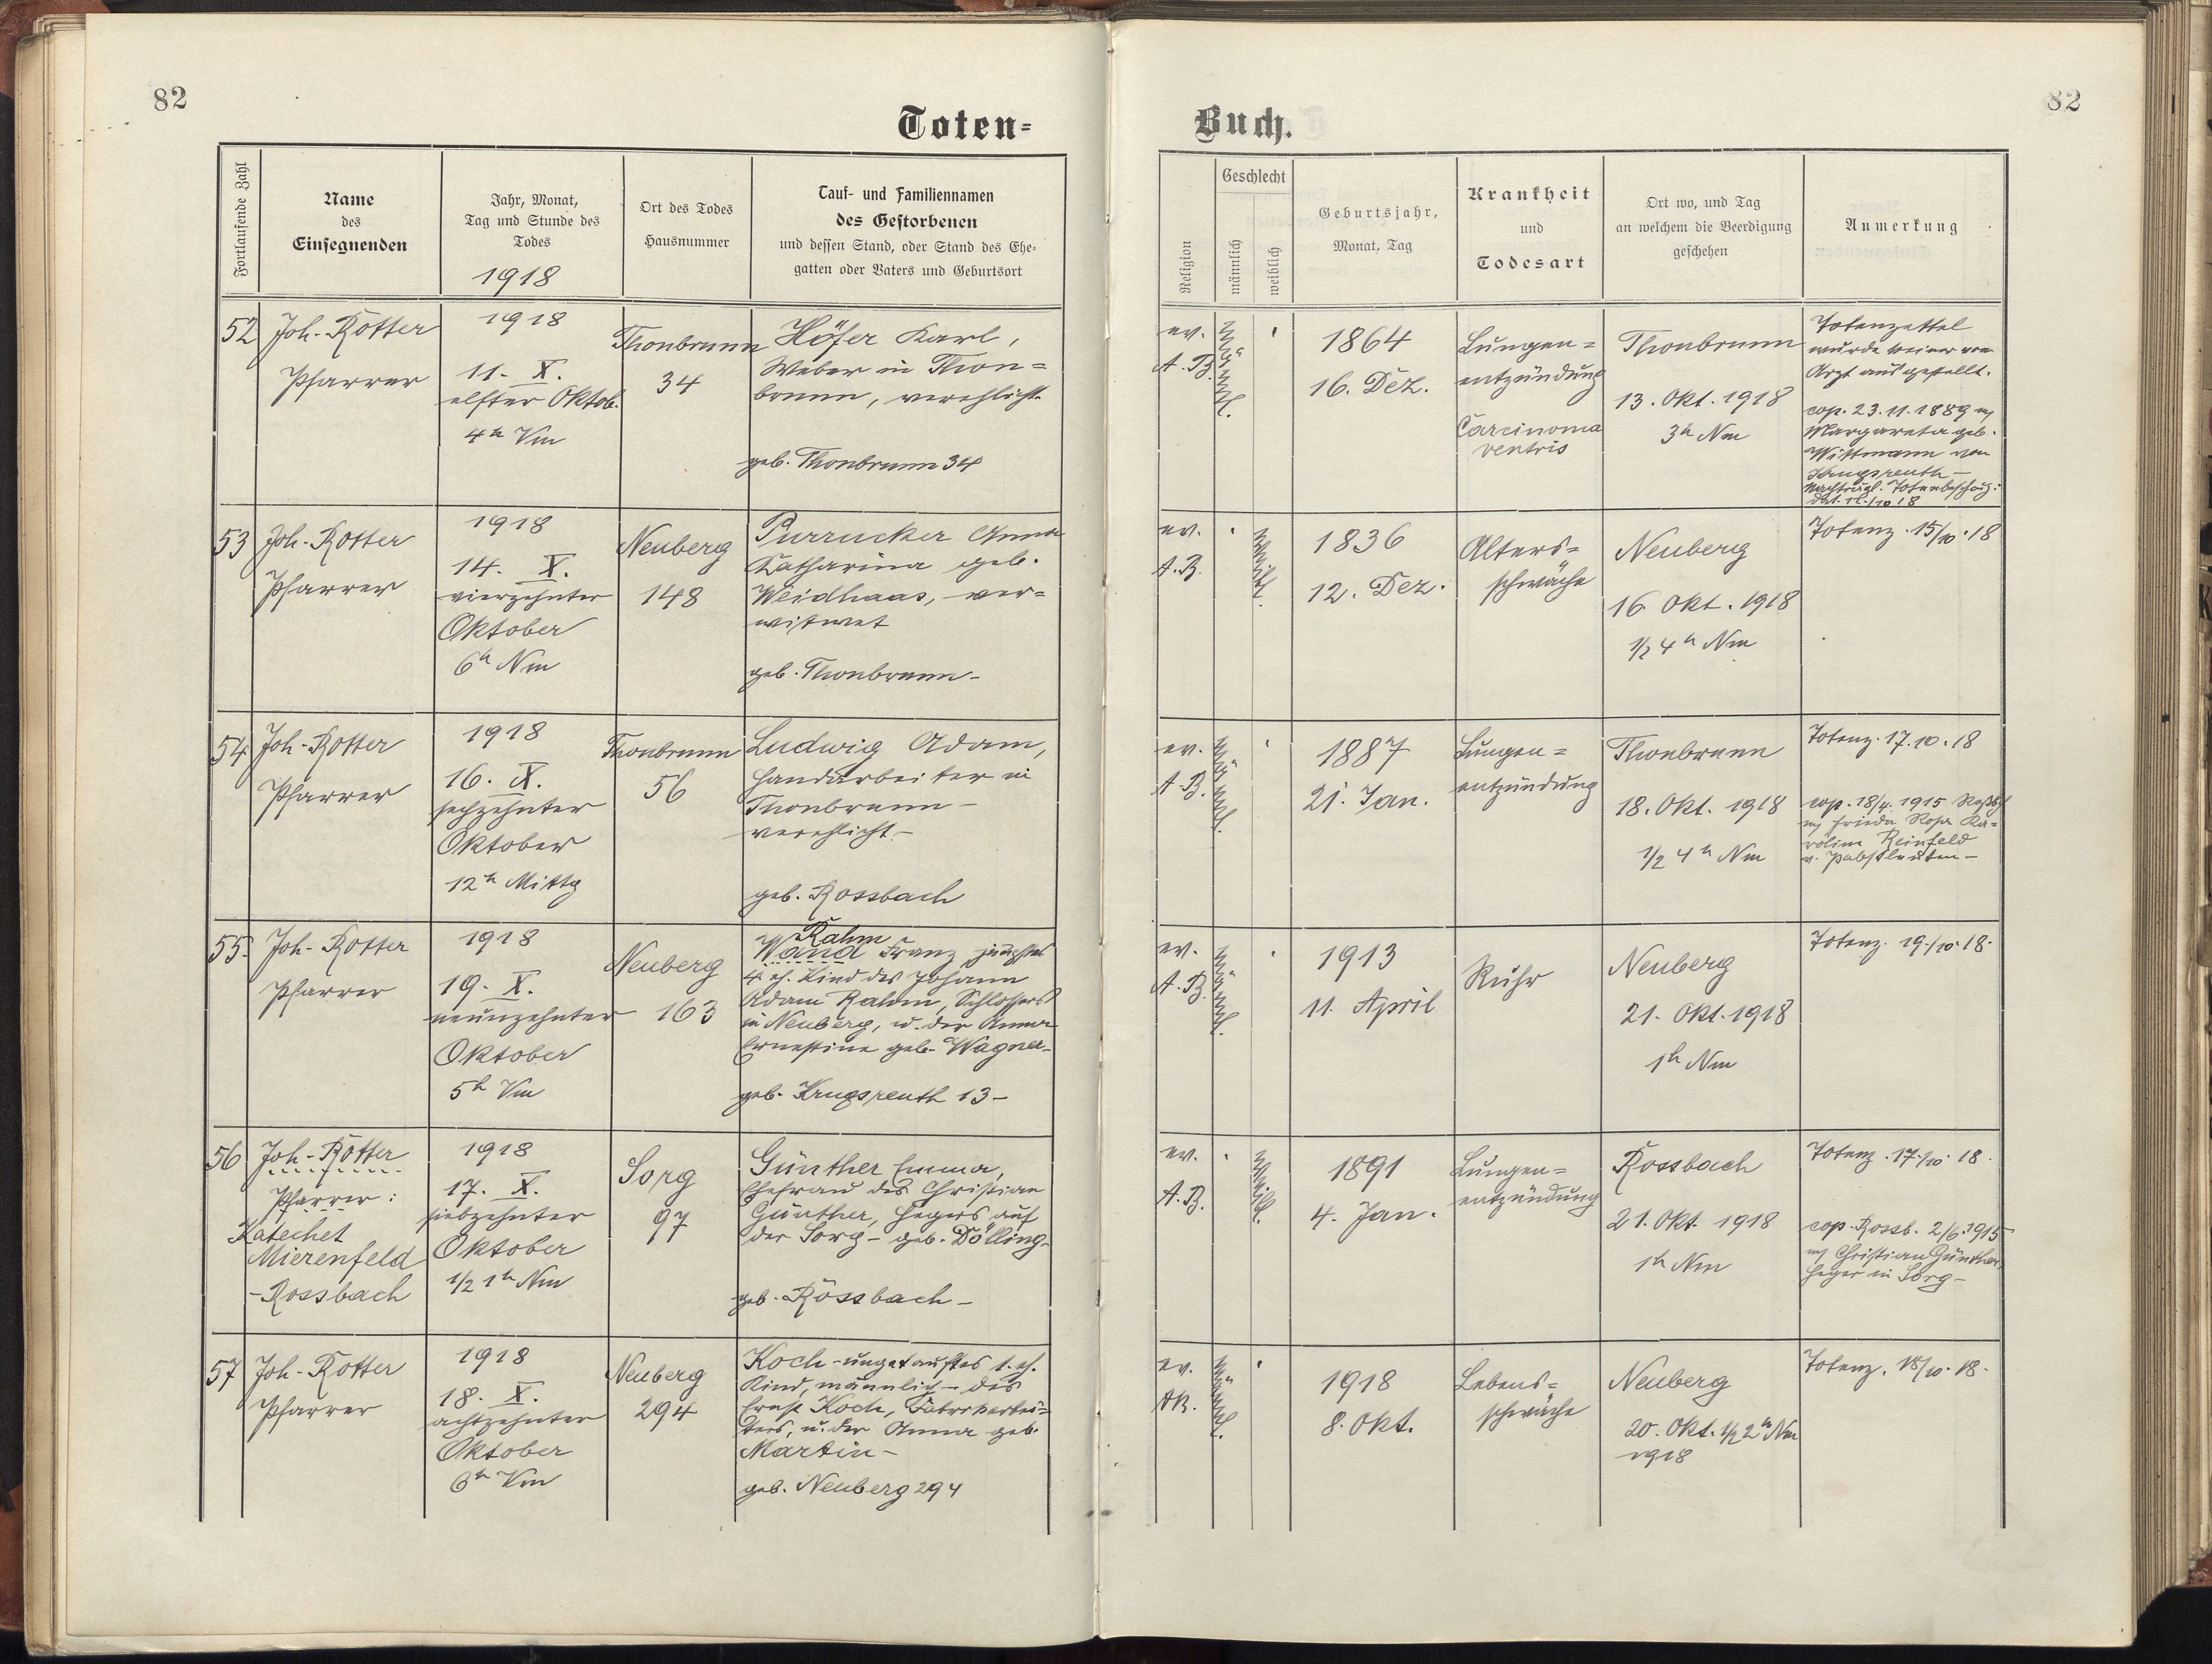 82
Toten-
Fortlaufende Zahl
Name
des
Einsegnenden
Jahr, Monat,
Tag und Stunde des
Todes
1918
Ort des Todes
Hausnummer
Tauf- und Familiennamen
des Gestorbenen
und dessen Stand, oder Stand des Ehe-
gatten oder Vaters und Geburtsort
52
Joh. Rotter
Pfarrer
1918
11. X.
elfter Oktob.
4h Vm
Thonbrunn
34
Höfer Karl,
Weber in Thon=
brunn, verehlicht
geb. Thonbrunn 34
53
Joh. Rotter
Pfarrer
1918
14. X.
vierzehnter
Oktober
6h Nm
Neuberg
148
Purrucker Anna
Katharina geb.
Weidhaas, ver=
witwet
geb. Thonbrunn-
54
Joh. Rotter
Pfarrer
1918
16. X.
sechzehnter
Oktober
12h Mittg
Thonbrunn
56
Ludwig Adam,
Handarbeiter in
Thonbrunn-
verehlicht-
geb. Rossbach
55.
Joh. Rotter
Pfarrer
1918
19. X.
neunzehnter
Oktober
5h Vm
Neuberg
163
Rahm
Wand Franz
4 eh. Kind des Johann
Adam Rahm, Schlossers
in Neuberg, u. der Anna
Ernestine geb. Wagner-
geb. Krugsreuth 13-
56
Joh. Rotter
Pfarrer:
Katechet
Mierenfeld
-Rossbach
1918
17. X.
siebzehnter
Oktober
1/2 1h Nm
Sorg
97
Günther Emma,
Ehefrau des Christian
Günther, Hegers auf
der Sorg- geb. Dölling-
geb. Rossbach-
57
Joh. Rotter
Pfarrer
1918
18. X.
achtzehnter
Oktober
6h Vm
Neuberg
294
Koch-ungetauftes 1. eh.
Kind, männlich- des
Ernst Koch, Fabrikarbei=
ters, u. der Anna geb.
Martin-
geb. Neuberg 294
82
Buch.
Religion
Geschlecht
männlich
weiblich
Geburtsjahr,
Monat, Tag
Krankheit
und
Todesart
Ort wo, und Tag
an welchem die Beerdigung
geschehen
Anmerkung
ev.
A.B.
männl.
1864
16. Dez.
Lungen=
entzündung
Carcinoma
ventris
Thonbrunn
13. Okt. 1918
3h Nm
Totenzettel
wurde keiner vom
Arzt ausgestellt.
cop. 23.11.1889 m/
Margareta geb.
Wittmann von
Krugsreuth-
Nachträgl. Totenbeschauz:
ev.
A.B.
weibl.
1836
12. Dez.
Alters=
schwäche
Neuberg
16. Okt. 1918
1/2 4h Nm
Totenz. 15/10.18
ev.
A.B.
männl.
1887
21. Jan.
Lungen=
entzündung
Thonbrunn
18. Okt. 1918
1/2 4h Nm
Totenz. 17.10.18
cop. 18/4. 1915 Roßb/
m/ Frieda Rosa Ka=
roline Reinfeld
v. Pabstleuten-
ev.
A.B.
männl.
1913
11. April
Ruhr
Neuberg
21. Okt. 1918
1h Nm
Totenz. 19./10.18.
ev.
A.B.
weibl.
1891
4. Jan.
Lungen=
entzündung
Rossbach
21. Okt. 1918
1h Nm
Totenz. 17./10.18.
cop. Rossb. 2/6. 1915
m/ Christian Günther
Heger in Sorg-
ev.
AB.
männl.
1918
8. Okt.
Lebens=
schwäche
Neuberg
20. Okt. 1/2 2h Nm
1918
Totenz. 18/10.18.